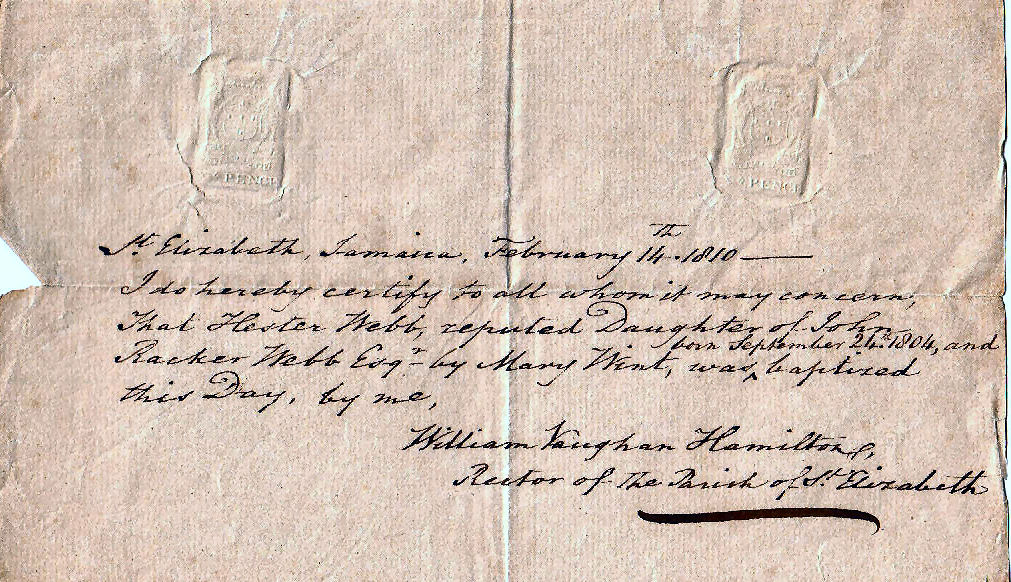 PENCE
PENCE
St. Elizabeth, Jamaica, February 14th. 1810 —
I do hereby certify to all whom it may concern,
That Hester Webb, reputed Daughter of John
born September 24th 1804, and
Racker Webb Esqr. by Mary Wint, was ‸ baptized
this Day, by me,
William Vaughan Hamilton,
Rector of the Parish of St. Elizabeth